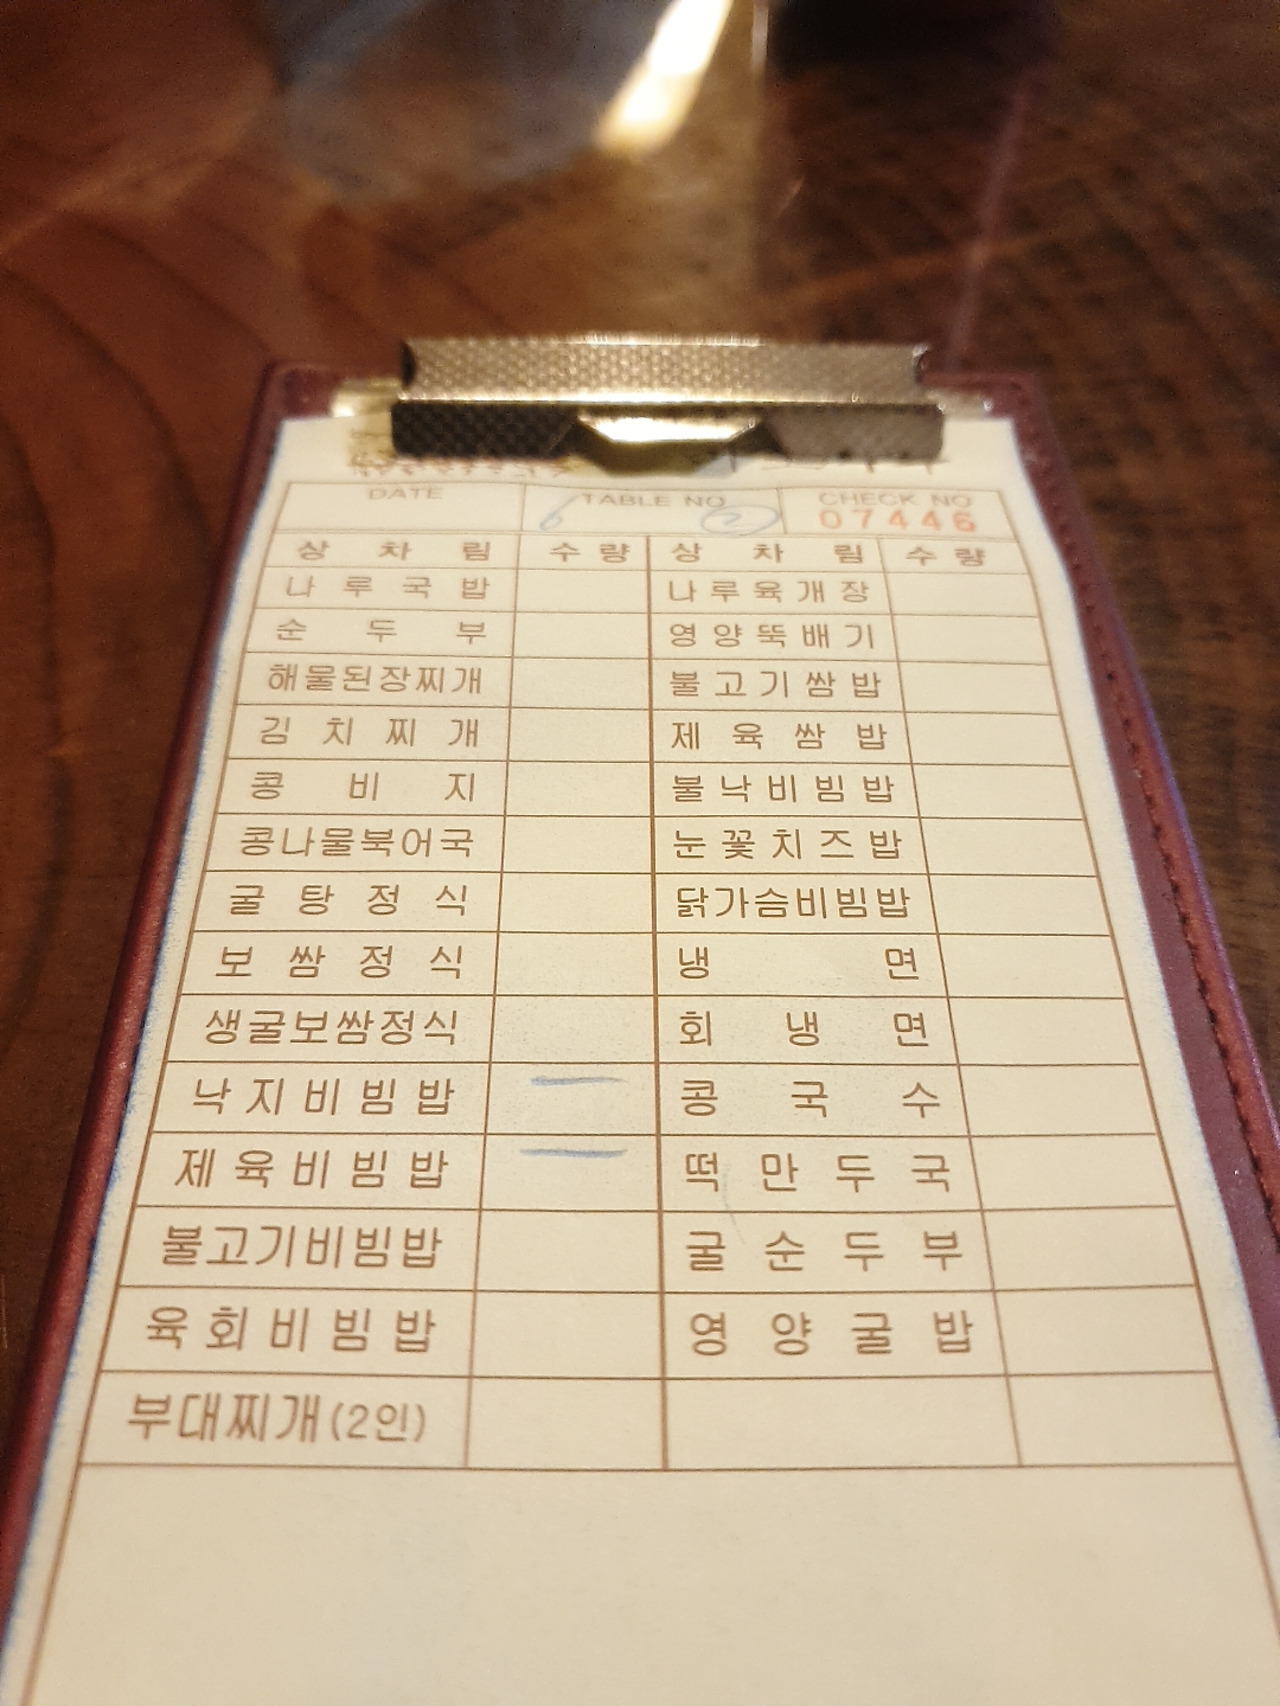 DATE TABLE NO CHECK NO
6 2 07446
상 차 림 수 량 상 차 림 수 량
나 루 국 밥 나 루 육 개 장
순 두 부 영 양 뚝 배 기
해물된장찌개 불 고 기 쌈 밥
김 치 찌 개 제 육 쌈 밥
콩 비 지 불 낙 비 빔 밥
콩나물북어국 눈 꽃 치 즈 밥
굴 탕 정 식 닭가슴비빔밥
보 쌈 정 식 냉 면
생굴보쌈정식 회 냉 면
낙 지 비 빔 밥 一 콩 국 수
제 육 비 빔 밥 一 떡 만 두 국
불고기비빔밥 굴 순 두 부
육 회 비 빔 밥 영 양 굴 밥
부대찌개(2인)